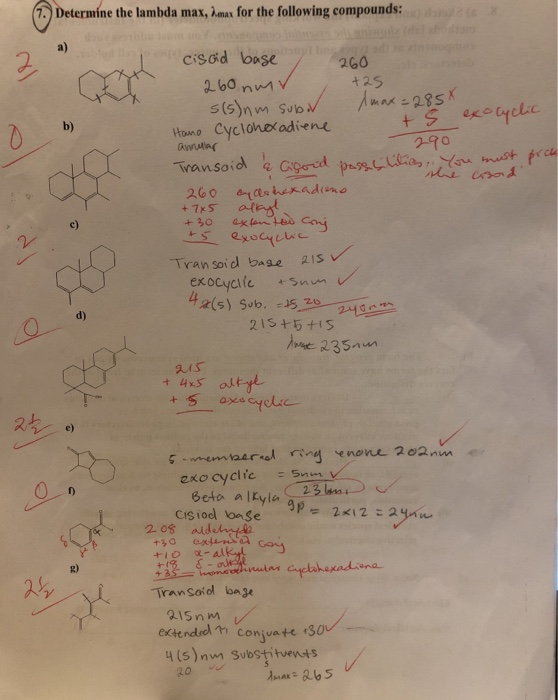 7. Determine the lambda max, λmax for the following compounds:
2
a)
cisoid base
260
260nm ✓
+25
5(5)nm sub. ✓
λmax = 285 x
+ 5 exocyclic
290
0
b)
Homo annular
Cyclohexadiene
Transoid & cisoid possibilities ∴ You must pick the cisoid.
260 cyclohexadiene
+ 7x5 alkyl
+ 30 extended conj
+ 5 exocyclic
2
c)
Transoid base 215 ✓
exocyclic +5nm ✓
4 (5) sub. = 15 20 240nm
215+5+15
λmax 235nm
0
d)
215
+ 4x5 alkyl
+ 5 exocyclic
2½
e)
5-membered ring enone 202nm
exocyclic = 5nm ✓
Beta alkyla
231nm
gp = 2x12 = 24nm
0
f)
α
β
γ
δ
Cisiod base
208 aldehyde
+30 extended conj
+10 α-alkyl
+18 δ-alkyl
+35 homoannular cyclohexadiene
2½
g)
Transoid base
215nm ✓
extended π conjuate +30 ✓
4(5)nm Substituents
20
λmax = 265 ✓